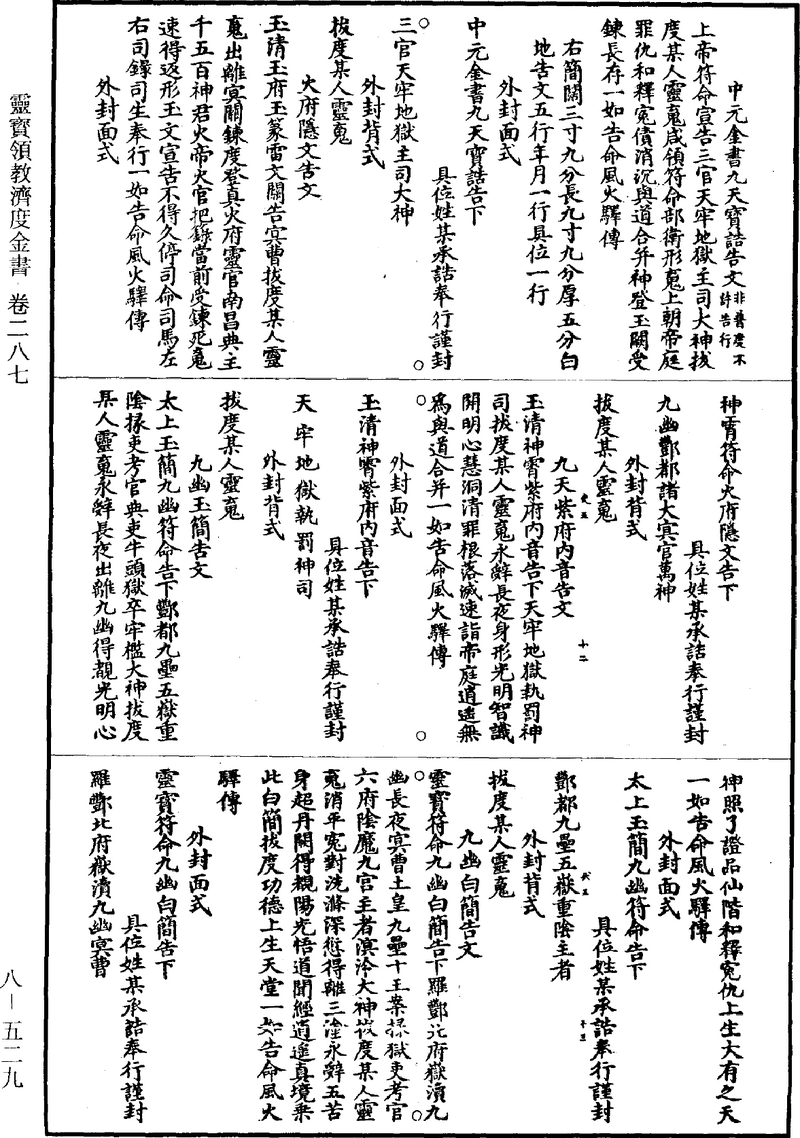 中元金書九天寶誥告文非普度不許告行
上帝符命宣告三官天牢地獄主司大神拔
度某人靈䰟咸領符命部衛形䰟上朝帝庭
罪仇和釋寃債消沉與道合并神登玉闕受
鍊長存一如告命風火驛傳
右簡闊三寸九分長九寸九分厚五分白
地告文五行年月一行具位一行
外封面式
中元金書九天寶誥告下
具位姓某承誥奉行謹封
三官天牢地獄主司大神
外封背式
拔度某人靈䰟
火府隱文告文
玉清玉府玉篆雷文關告㝠曹拔度某人靈
䰟出離㝠關鍊度登真火府靈官南昌典主
千五百神君火帝火官把籙當前受鍊死䰟
速得返形玉文宣告不得久停司命司馬左
右司錄司生奉行一如告命風火驛傳
外封面式
神霄符命火府隱文告下
具位姓某承誥奉行謹封
九幽酆都諸大㝠官萬神
外封背式
拔度某人靈䰟
九天紫府內音告文
玉清神霄紫府內音告下天牢地獄執罰神
司拔度某人靈䰟永辭長夜身形光明智識
開明心慧洞清罪根落滅速詣帝庭逍遙無
為與道合并一如告命風火驛傳
外封面式
玉清神霄紫府內音告下
具位姓某承誥奉行謹封
天牢地獄執罰神司
外封背式
拔度某人靈䰟
九幽玉簡告文
太上玉簡九幽符命告下酆都九壘五嶽重
陰掾吏考官典吏牛頭獄卒牢檻大神拔度
某人靈䰟永辭長夜出離九幽得覩光明心
神照了證品仙階和釋寃仇上生大有之天
一如告命風火驛傳
外封面式
太上玉簡九幽符命告下
具位姓某承誥奉行謹封
酆都九壘五嶽重陰主者
外封背式
拔度某人靈䰟
九幽白簡告文
靈寶符命九幽白簡告下羅酆北府嶽瀆九
幽長夜㝠曹土皇九壘十王案掾獄吏考官
六府陰魔九宮主者溟泠大神拔度某人靈
䰟消平寃對洗滌深愆得離三塗永辭五苦
身超丹闕得覩陽光悟道聞經逍遙真境乘
此白簡拔度功德上生天堂一如告命風火
驛傳
外封面式
靈寶符命九幽白簡告下
具位姓某承誥奉行謹封
羅酆北府嶽瀆九幽㝠曹
靈寶領教濟度金書 卷二八七
八－五二九